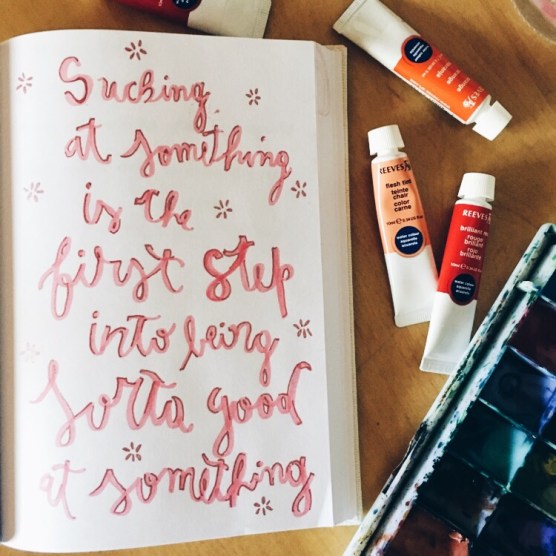 Sucking
at something
is the
first step
into being
sorta good
at something
REEVES
flesh tint
teinte
chair
color
carne
water colour
REEVES
brilliant red
rouge
brillant
rojo
brillante
water colour